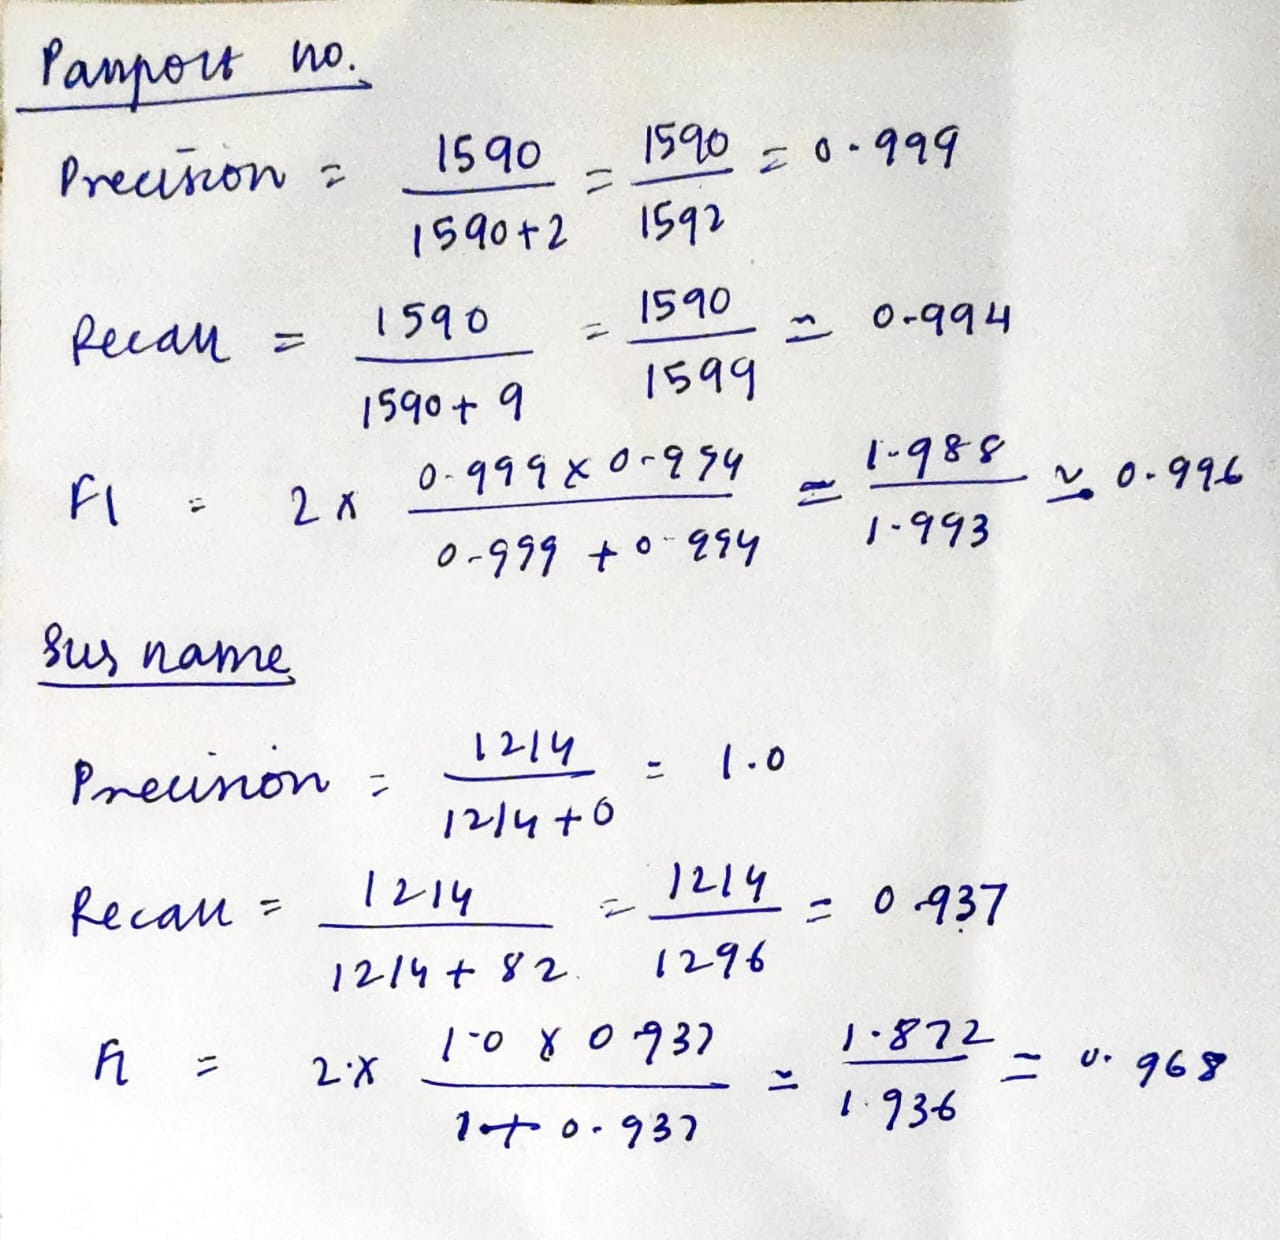 Passport no.
Precision = 1590 / 1590+2 = 1590 / 1592 = 0.999
Recall = 1590 / 1590+9 = 1590 / 1599 ≃ 0.994
F1 = 2 x 0.999 x 0.994 / 0.999 + 0.994 = 1.988 / 1.993 ≃ 0.996
Surname
Precision = 1214 / 1214+0 = 1.0
Recall = 1214 / 1214+82 = 1214 / 1296 = 0.937
F1 = 2 x 1.0 x 0.937 / 1+0.937 ≃ 1.872 / 1.936 = 0.968